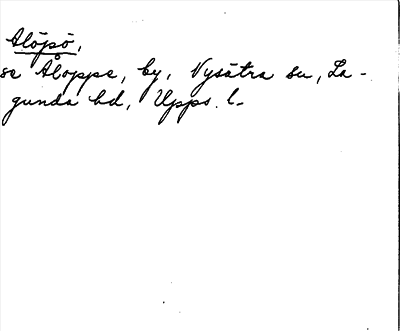 Alöpö,
se Åloppe, by, Nysätra sn, La-
gunda hd, Upps. l.